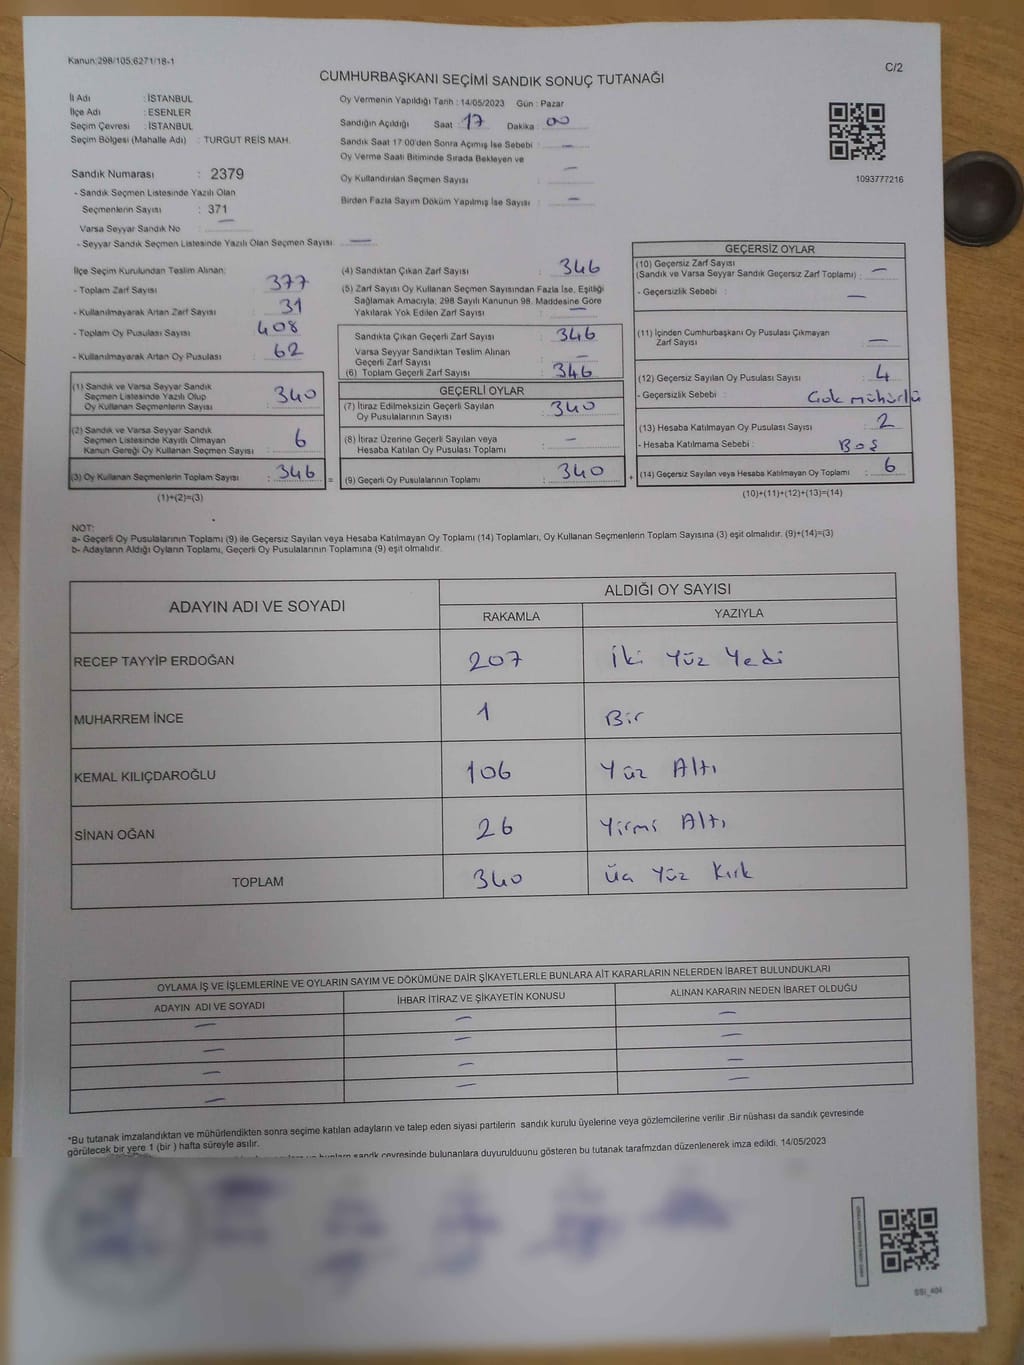 Kanun:298/105,6271/18-1
C/2
CUMHURBAŞKANI SEÇİMİ SANDIK SONUÇ TUTANAĞI
İl Adı : İSTANBUL
İlçe Adı : ESENLER
Seçim Çevresi : İSTANBUL
Seçim Bölgesi (Mahalle Adı) : TURGUT REİS MAH.
Sandık Numarası : 2379
- Sandık Seçmen Listesinde Yazılı Olan
Seçmenlerin Sayısı : 371
Varsa Seyyar Sandık No —
- Seyyar Sandık Seçmen Listesinde Yazılı Olan Seçmen Sayısı : —
Oy Vermenin Yapıldığı Tarih : 14/05/2023 Gün : Pazar
Sandığın Açıldığı Saat : 17 Dakika : 00
Sandık Saat 17:00'den Sonra Açımış İse Sebebi : —
Oy Verme Saati Bitiminde Sırada Bekleyen ve
Oy Kullandırılan Seçmen Sayısı : —
Birden Fazla Sayım Döküm Yapılmış İse Sayısı : —
1093777216
İlçe Seçim Kurulundan Teslim Alınan:
- Toplam Zarf Sayısı : 377
- Kullanılmayarak Artan Zarf Sayısı : 31
- Toplam Oy Pusulası Sayısı : 408
- Kullanılmayarak Artan Oy Pusulası : 62
(1) Sandık ve Varsa Seyyar Sandık
Seçmen Listesinde Yazılı Olup
Oy Kullanan Seçmenlerin Sayısı : 340
(2) Sandık ve Varsa Seyyar Sandık
Seçmen Listesinde Kayıtlı Olmayan
Kanun Gereği Oy Kullanan Seçmen Sayısı : 6
(3) Oy Kullanan Seçmenlerin Toplam Sayısı : 346
(1)+(2)=(3)
(4) Sandıktan Çıkan Zarf Sayısı : 346
(5) Zarf Sayısı Oy Kullanan Seçmen Sayısından Fazla İse, Eşitliği
Sağlamak Amacıyla, 298 Sayılı Kanunun 98. Maddesine Göre
Yakılarak Yok Edilen Zarf Sayısı : —
Sandıkta Çıkan Geçerli Zarf Sayısı : 346
Varsa Seyyar Sandıktan Teslim Alınan
Geçerli Zarf Sayısı : —
(6) Toplam Geçerli Zarf Sayısı : 346
GEÇERLİ OYLAR
(7) İtiraz Edilmeksizin Geçerli Sayılan
Oy Pusulalarının Sayısı : 340
(8) İtiraz Üzerine Geçerli Sayılan veya
Hesaba Katılan Oy Pusulası Toplamı : —
= (9) Geçerli Oy Pusulalarının Toplamı : 340
GEÇERSİZ OYLAR
(10) Geçersiz Zarf Sayısı
(Sandık ve Varsa Seyyar Sandık Geçersiz Zarf Toplamı) : —
- Geçersizlik Sebebi : —
(11) İçinden Cumhurbaşkanı Oy Pusulası Çıkmayan
Zarf Sayısı : —
(12) Geçersiz Sayılan Oy Pusulası Sayısı : 4
- Geçersizlik Sebebi : Çok mühürlü
(13) Hesaba Katılmayan Oy Pusulası Sayısı : 2
- Hesaba Katılmama Sebebi : Boş
+ (14) Geçersiz Sayılan veya Hesaba Katılmayan Oy Toplamı : 6
(10)+(11)+(12)+(13)=(14)
NOT:
a- Geçerli Oy Pusulalarının Toplamı (9) ile Geçersiz Sayılan veya Hesaba Katılmayan Oy Toplamı (14) Toplamları, Oy Kullanan Seçmenlerin Toplam Sayısına (3) eşit olmalıdır. (9)+(14)=(3)
b- Adayların Aldığı Oyların Toplamı, Geçerli Oy Pusulalarının Toplamına (9) eşit olmalıdır.
ADAYIN ADI VE SOYADI ALDIĞI OY SAYISI
RAKAMLA YAZIYLA
RECEP TAYYİP ERDOĞAN 207 İki Yüz Yedi
MUHARREM İNCE 1 Bir
KEMAL KILIÇDAROĞLU 106 Yüz Altı
SİNAN OĞAN 26 Yirmi Altı
TOPLAM 340 Üç Yüz Kırk
OYLAMA İŞ VE İŞLEMLERİNE VE OYLARIN SAYIM VE DÖKÜMÜNE DAİR ŞİKAYETLERLE BUNLARA AİT KARARLARIN NELERDEN İBARET BULUNDUKLARI
ADAYIN ADI VE SOYADI İHBAR İTİRAZ VE ŞİKAYETİN KONUSU ALINAN KARARIN NEDEN İBARET OLDUĞU
— — —
— — —
— — —
— — —
*Bu tutanak imzalandıktan ve mühürlendikten sonra seçime katılan adayların ve talep eden siyasi partilerin sandık kurulu üyelerine veya gözlemcilerine verilir .Bir nüshası da sandık çevresinde
görülecek bir yere 1 (bir ) hafta süreyle asılır.
sandık çevresinde bulunanlara duyurulduunu gösteren bu tutanak tarafmzdan düzenlenerek imza edildi. 14/05/2023